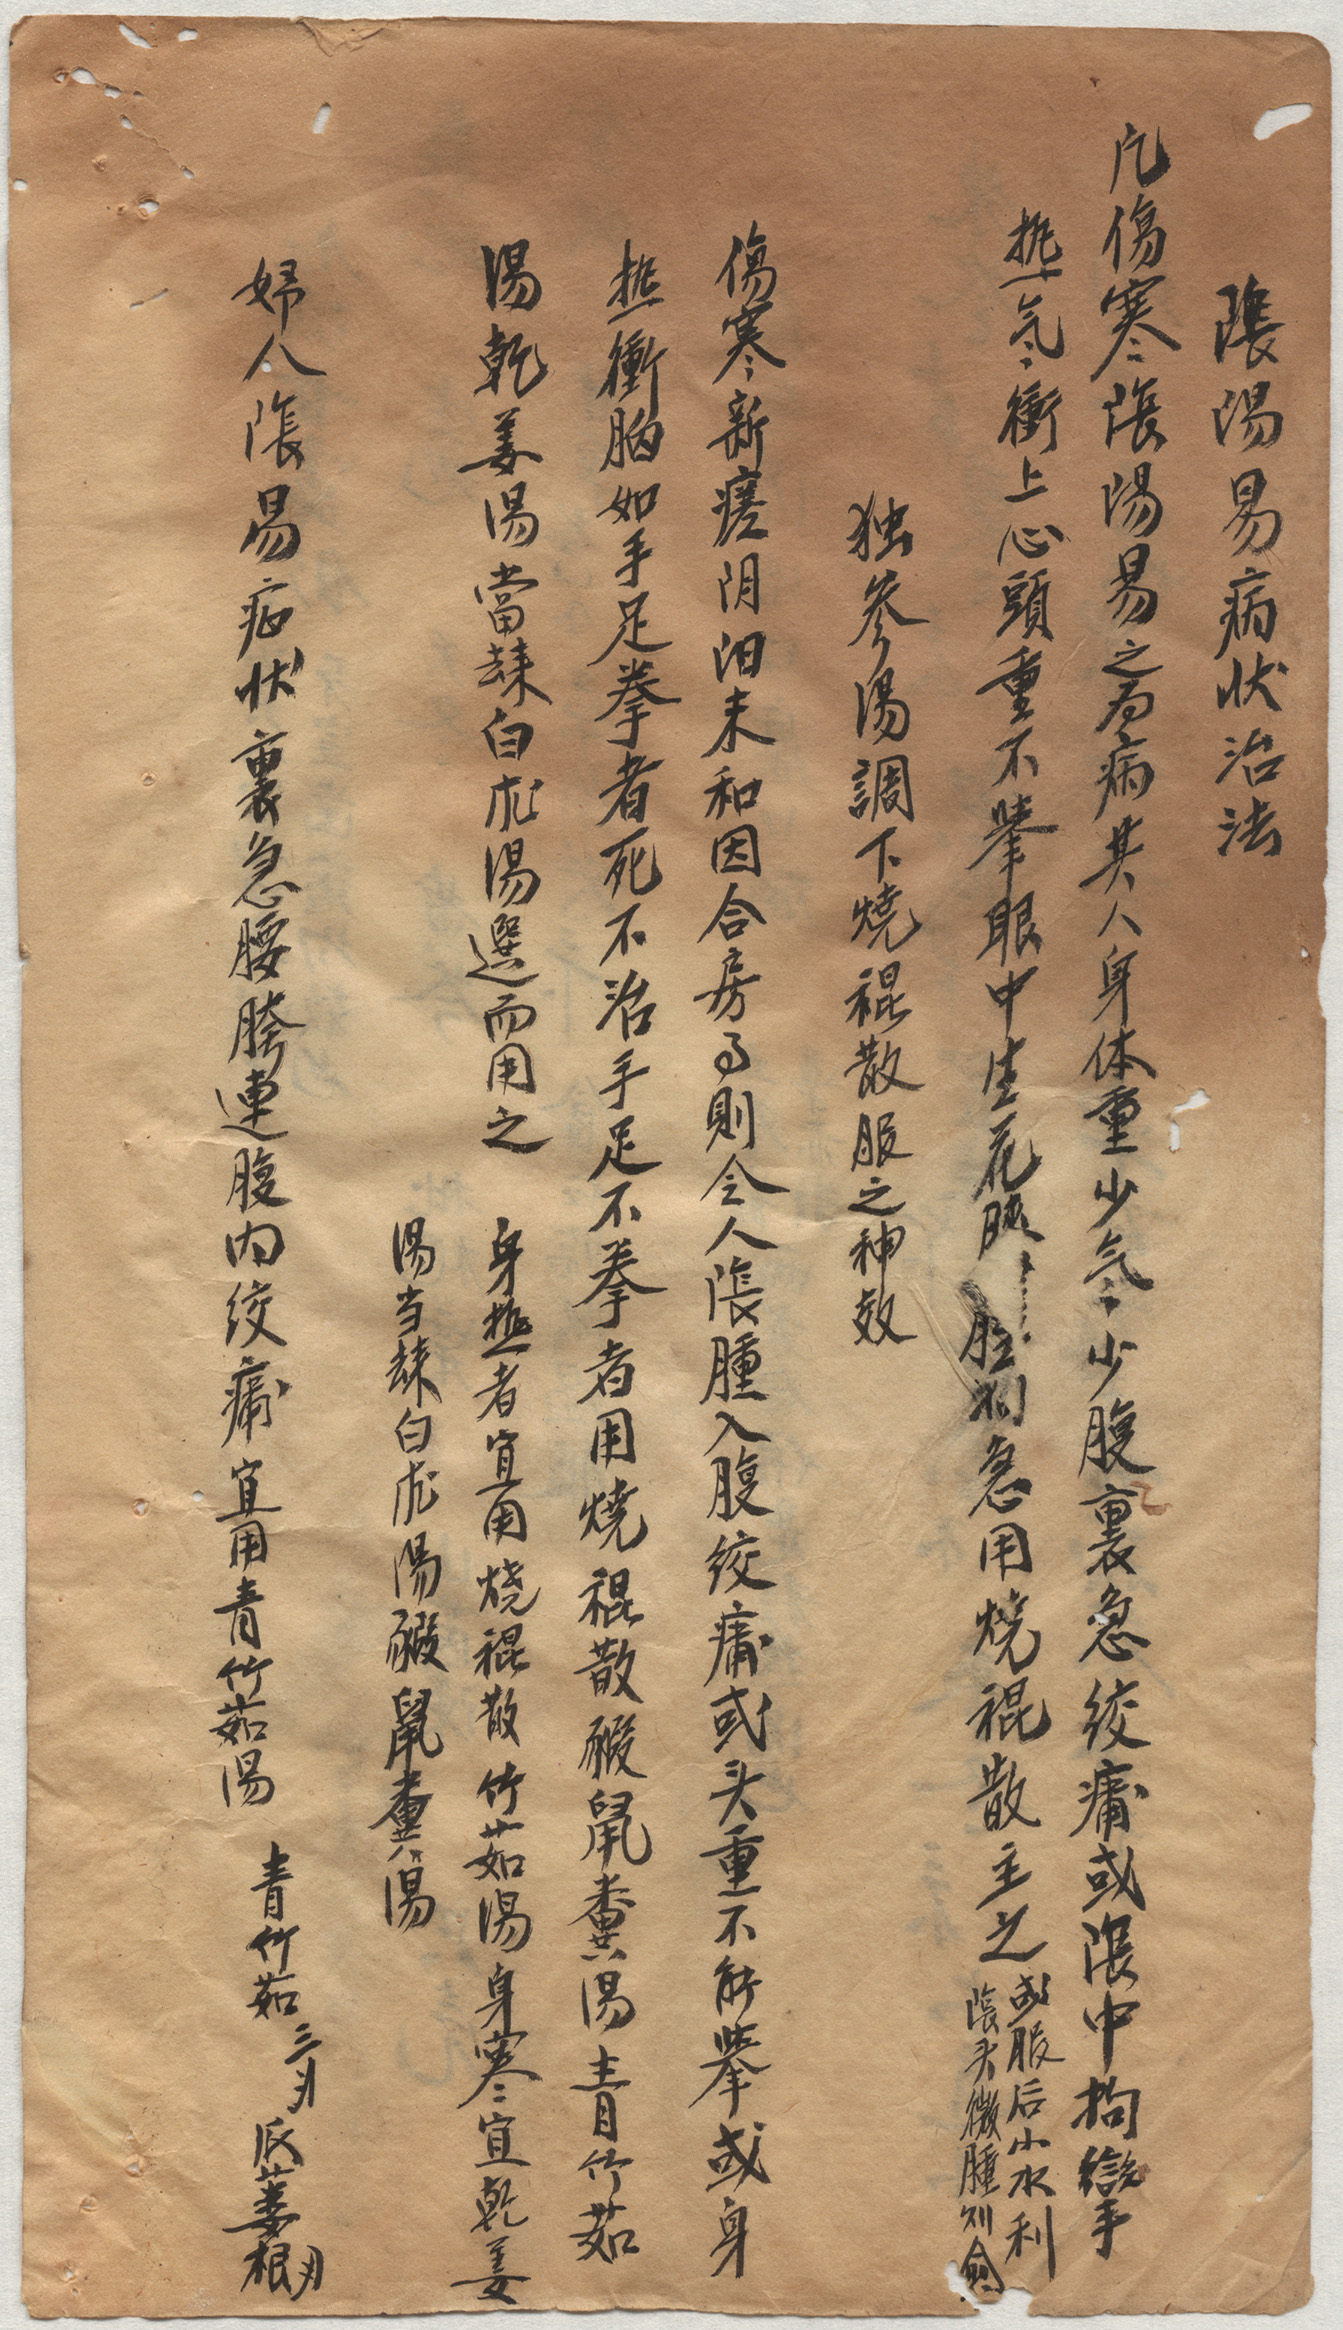 陰陽易病状治法
凢傷寒陰陽易之为病其人身体重少氣少腹裏急絞痛或陰中拘孿
热氣衝上心頭重不舉眼中生花膝胫拘急用燒裩散主之或服后小水利
陰头微腫则愈
独參湯調下燒裩散服之神效
傷寒新瘥阴阳未和因合房事則令人陰腫入腹絞痛或头重不能舉或身
热衝胸如手足拳者死不治手足不拳者用燒裩散豭鼠糞湯青竹茹
湯乾姜湯當歸白朮湯選而用之
身热者宜用燒裩散竹茹湯身寒宜乾姜
湯当歸白朮湯豭鼠糞湯
婦人陰易症状裏急腰胯連腹内絞痛宜用青竹茹湯
青竹茹三刄
瓜蔞根刄